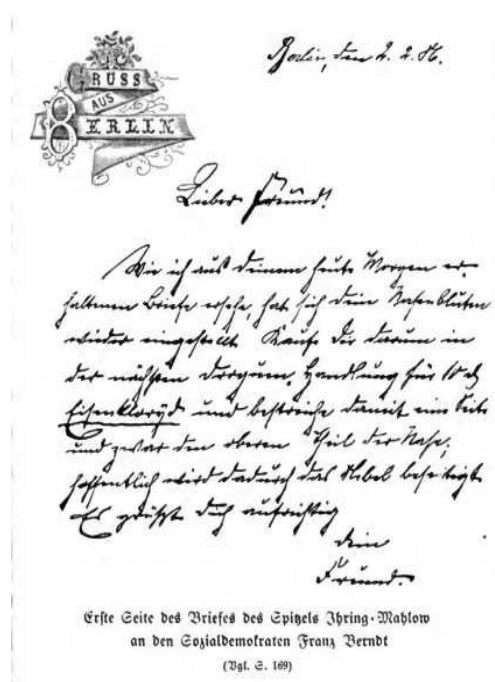 GRUSS
AUS
BERLIN
Berlin, den 2. 2. 86.
Lieber Freund!
Wie ich aus Deinem heute Morgen er-
haltenen Briefe ersehe, hat sich dein Nasenbluten
wieder eingestellt. Kaufe Dir darum in
der nächsten Droguen-Handlung für 10 ₰
Eisenkloryd und bestreiche damit eine Seite
und zwar den oberen Theil der Nase;
hoffentlich wird dadurch das Uebel beseitigt.
Es grüßt Dich aufrichtig
dein
Freund.
Erste Seite des Briefes des Spitzels Ihring-Mahlow
an den Sozialdemokraten Franz Berndt
(Vgl. S. 169)